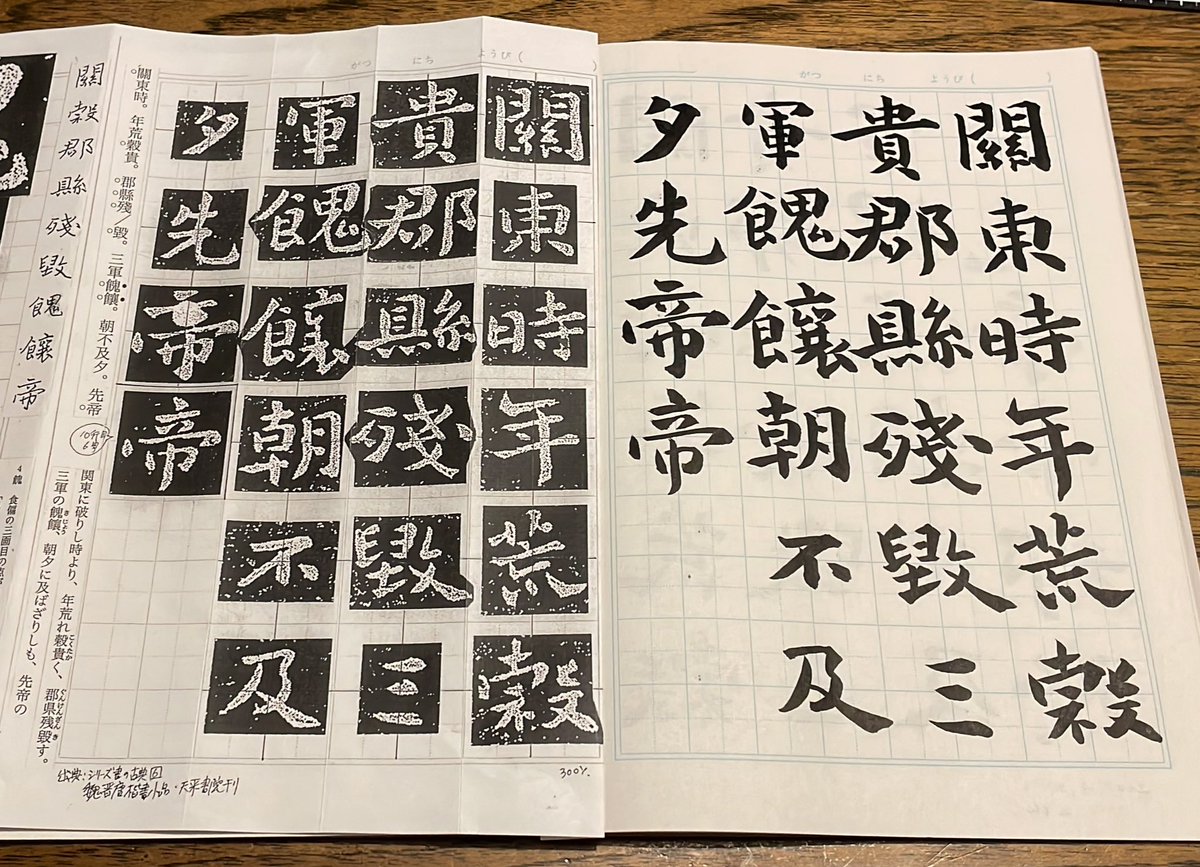 がつ にち ようび( )
關東時年荒穀
貴郡縣殘毀三
軍餽饟朝不及
夕先帝帝
がつ にち ようび( )
關東時年荒穀
貴郡縣殘毀三
軍餽饟朝不及
夕先帝帝
關東時。年荒穀貴。郡縣殘毀。三軍餽饟。朝不及夕。先帝
関東に破りし時より、年荒れ穀貴く、郡県残毀す。
三軍の餽饟、朝夕に及ばざりしも、先帝の
關穀郡縣殘毀餽饟帝
4 餽 食偏の三画目の点
300%.
出典:シリーズ書の古典
魏晋唐楷書小品・天来書院刊